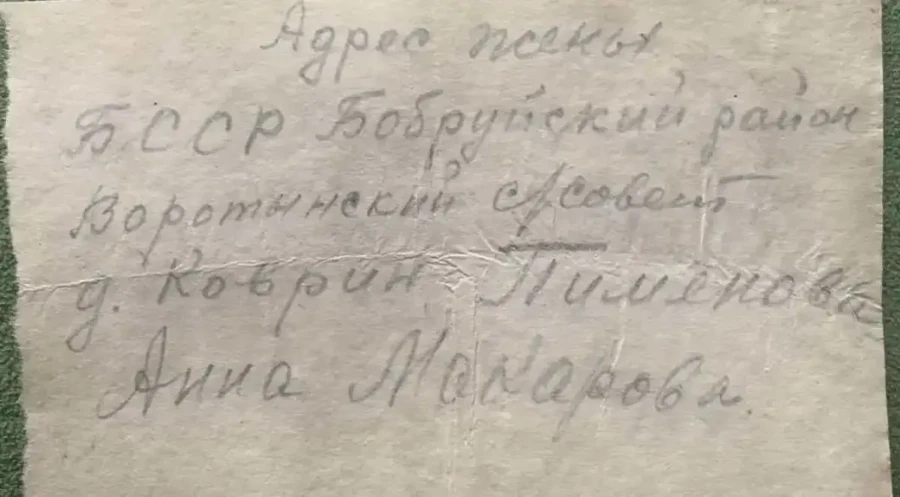 Адрес жены
БССР Бобруйский район
Воротынский с/совет
д. Коврин Пименова
Анна Макарова.